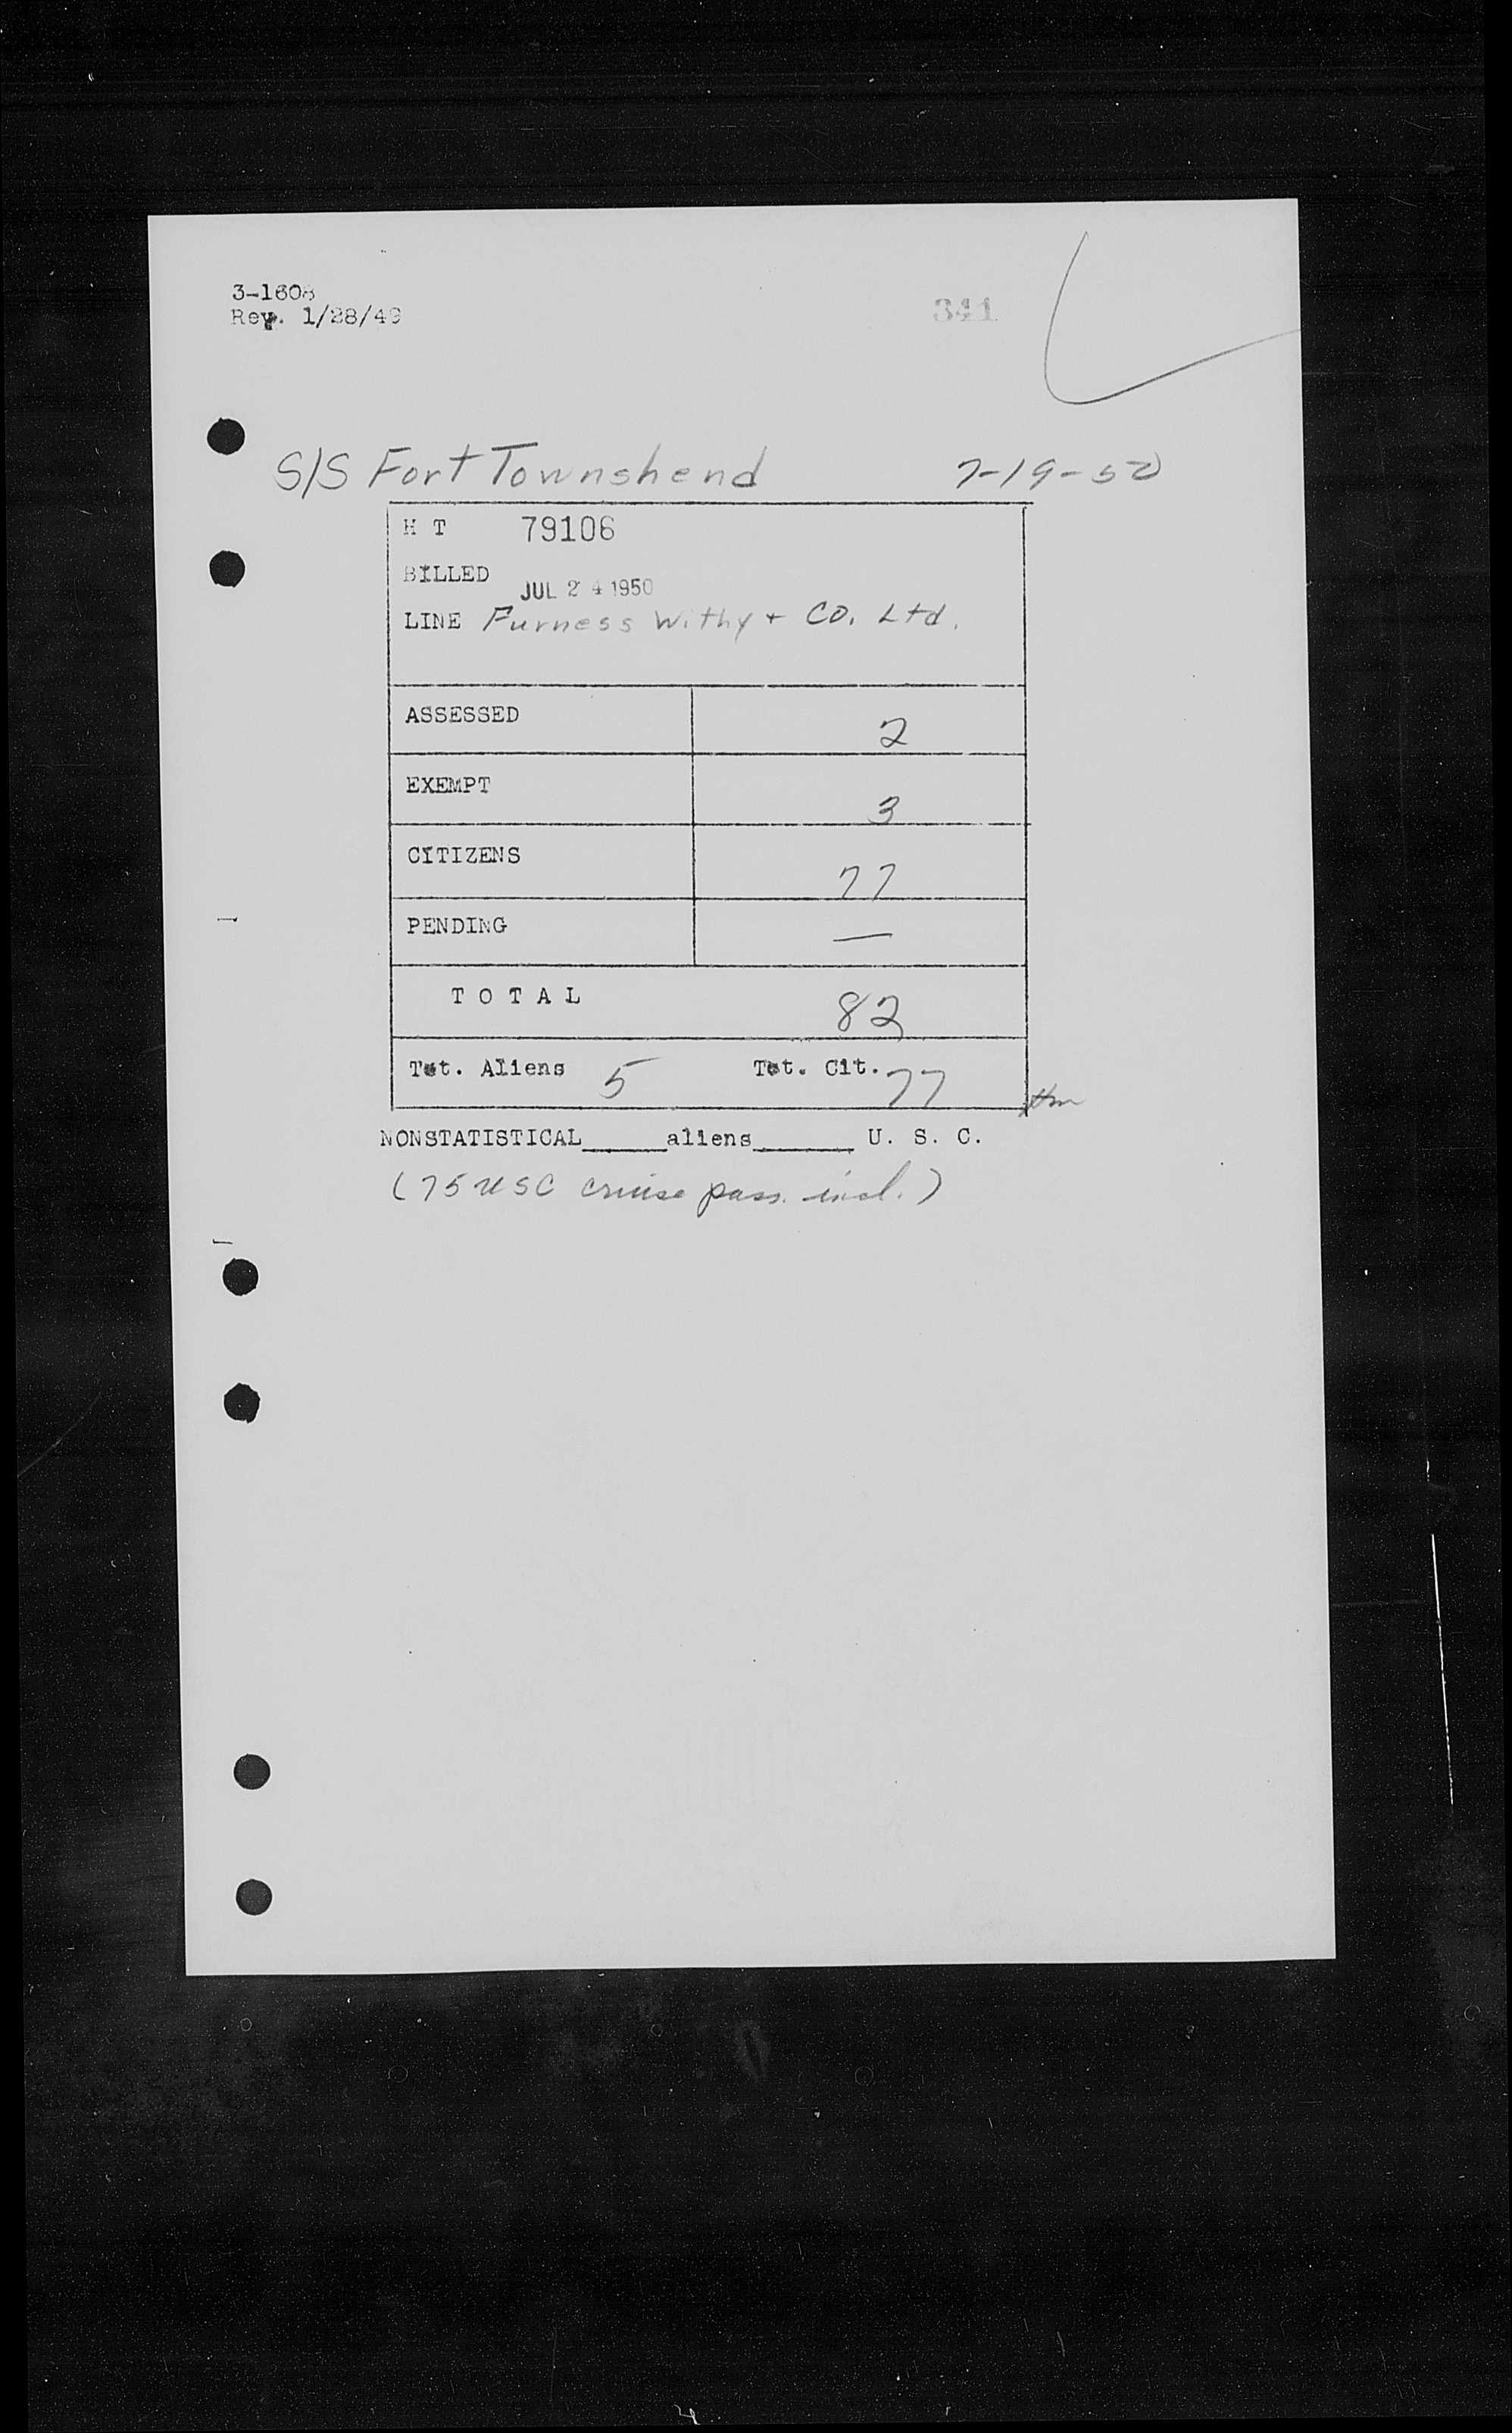 3-1608
Rev. 1/28/49
341
S/S Fort Townshend 7-19-50
H T 79106
BILLED JUL 24 1950
LINE Furness Withy + CO. Ltd.
ASSESSED 2
EXEMPT 3
CITIZENS 77
PENDING —
TOTAL 82
Tot. Aliens 5 Tot. Cit. 77
NONSTATISTICAL_____aliens______ U. S. C.
(75 USC cruise pass. incl.)